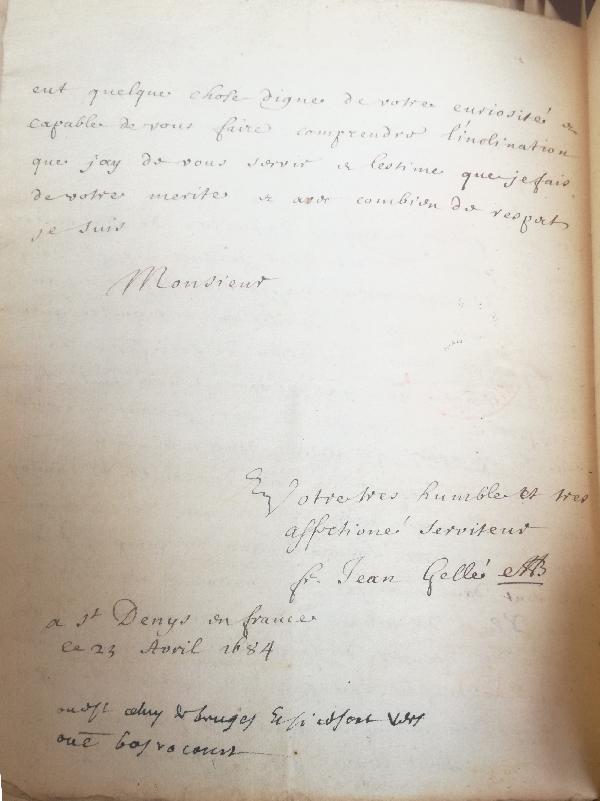 eut quelque chose digne de votre curiosité &
capable de vous faire comprendre l'inclination
que j'ay de vous servir & lestime que je fais
de votre merite & avec combien de respect
je suis
Monsieur
Votre tres humble et tres
affectioné serviteur
fr. Jean Gellé MB
a st Denys en france
ce 23 Avril 1684
ou est celuy de bruges & si ce sont vers